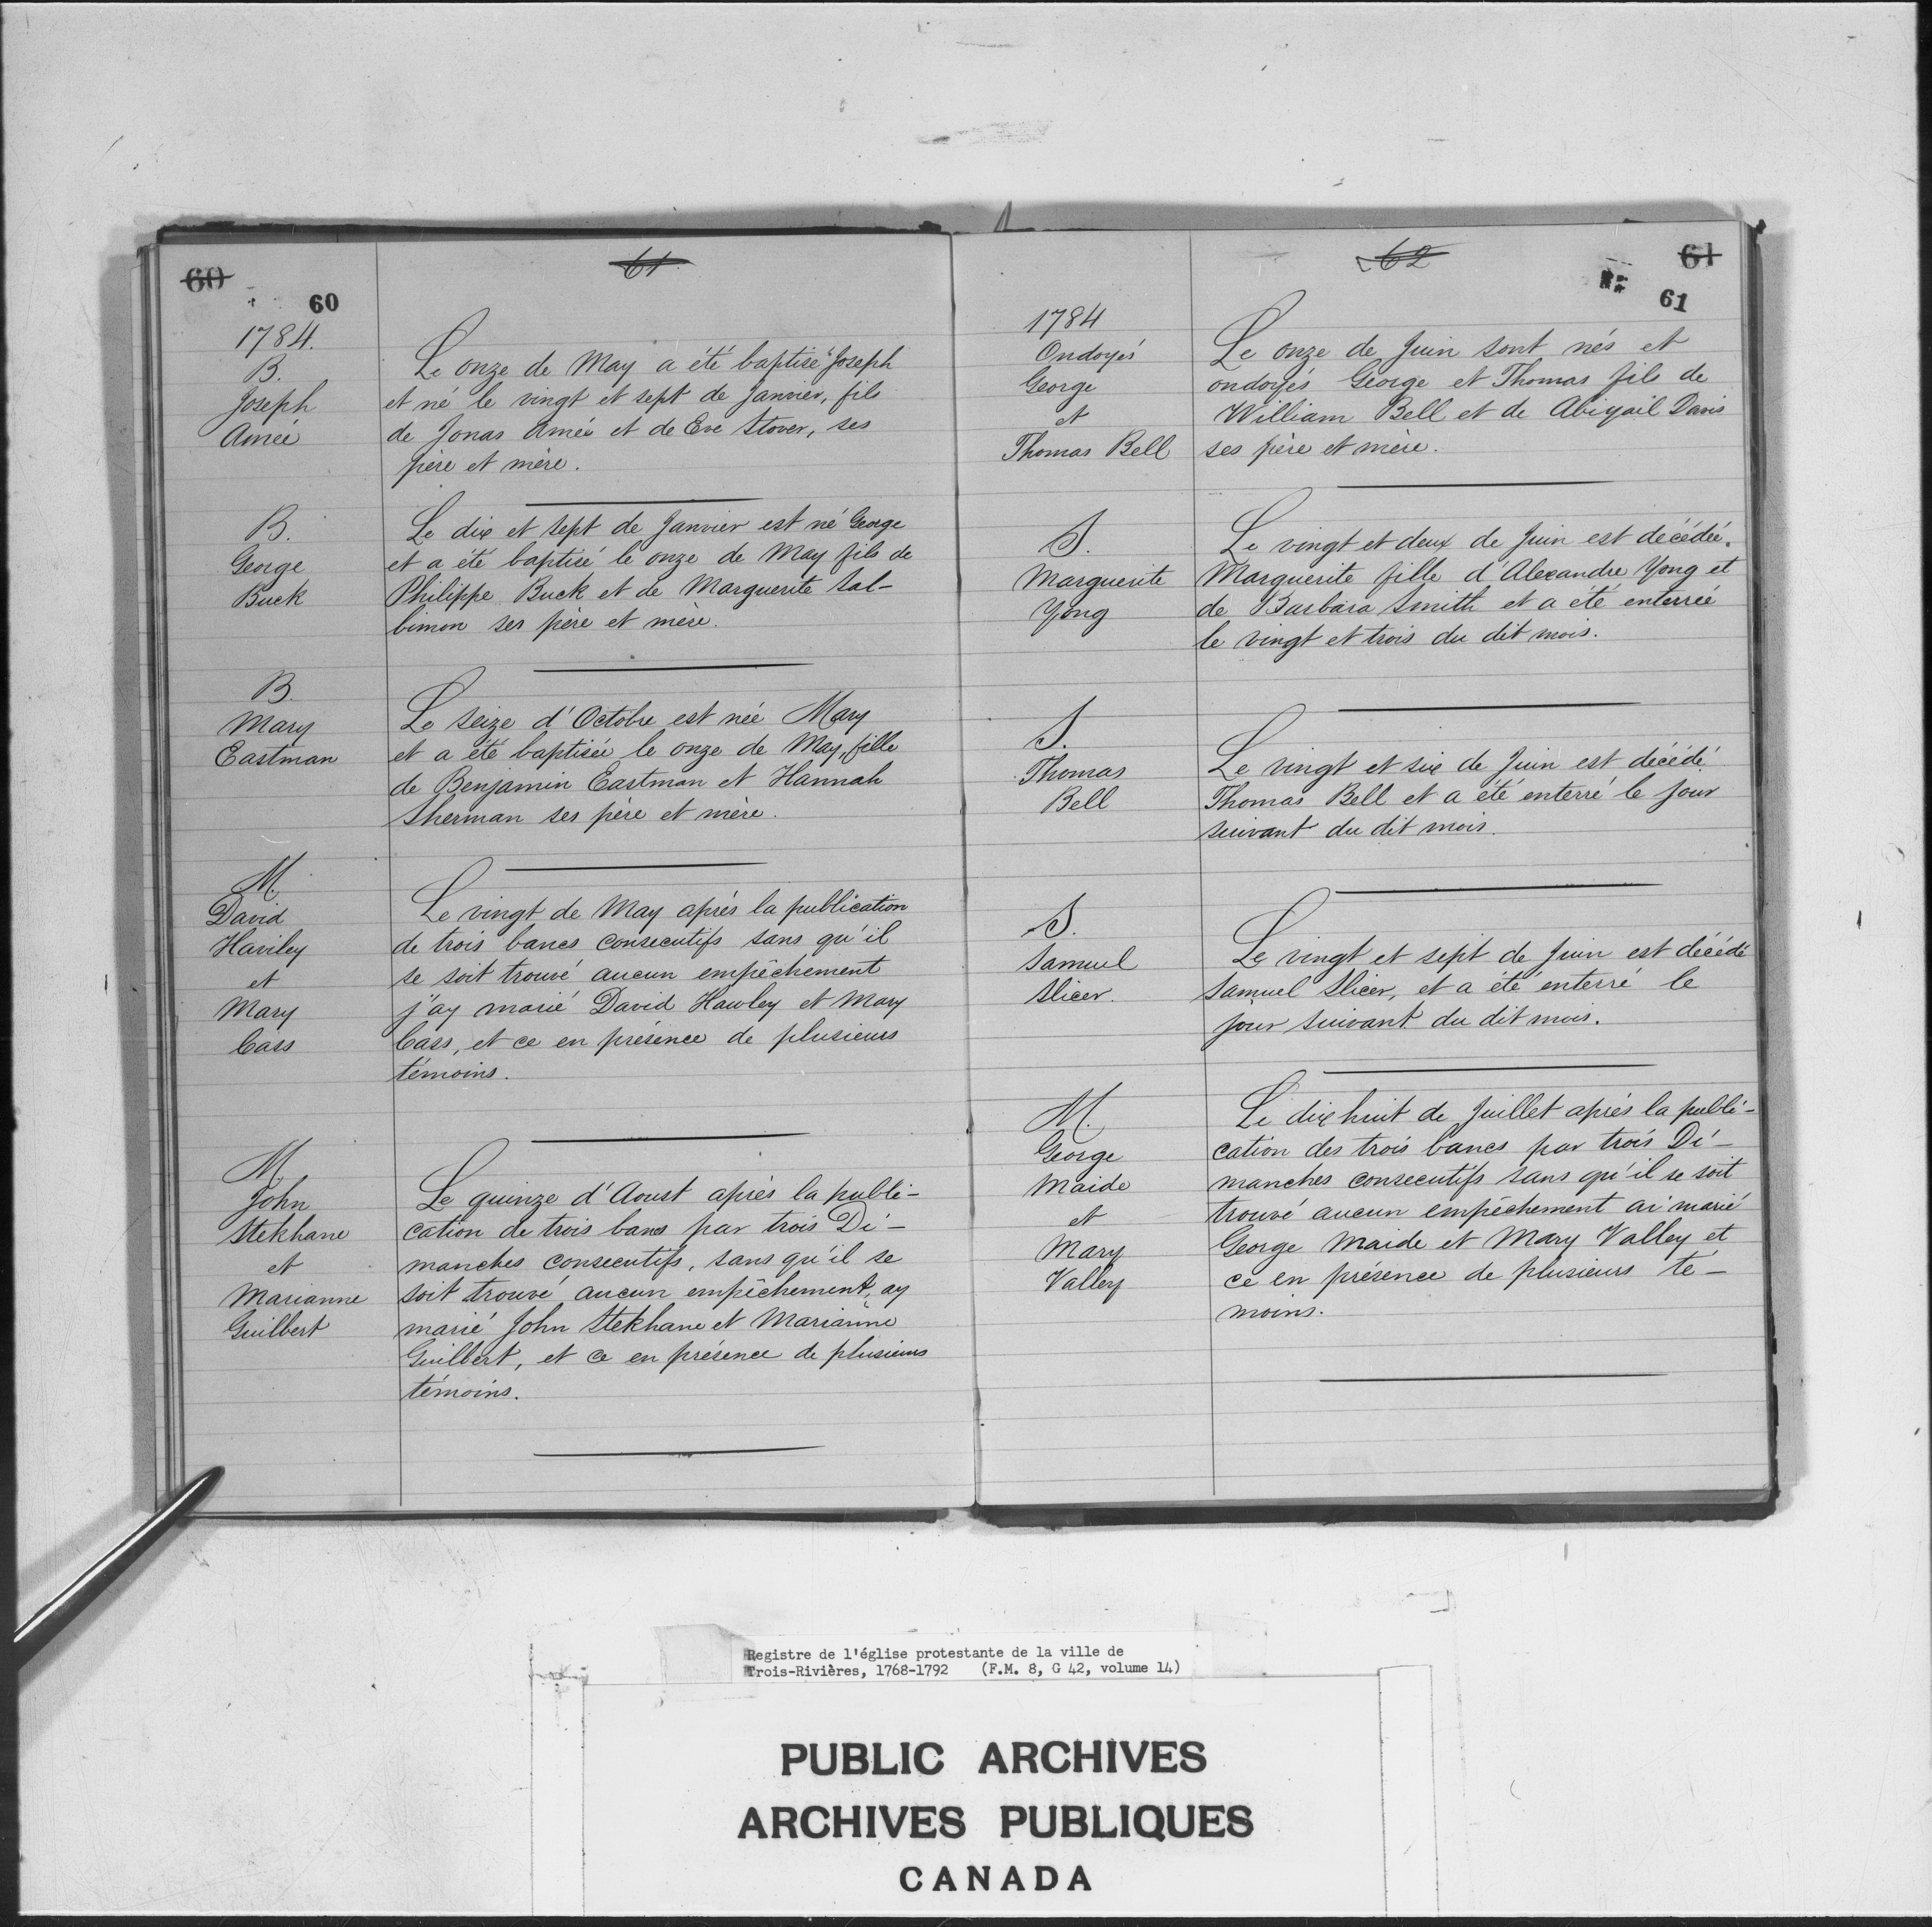 60
61
60
1784.
B.
Joseph
Ameé
Le onze de May a été baptisé Joseph
et né le vingt et sept de Janvier, fils
de Jonas Ameé et de Eve Stover, ses
père et mère.
B.
George
Buck
Le dix et sept de Janvier est né George
et a été baptisé le onze de May fils de
Philippe Buck et de Marguerite Sal-
bimon ses père et mère.
B.
Mary
Eastman
Le seize d'Octobre est née Mary
et a été baptisée le onze de May, fille
de Benjamin Eastman et Hannah
Sherman ses père et mère.
M
David
Haviley
et
Mary
Cass
Le vingt de May après la publication
de trois bancs consecutifs sans qu'il
se soit trouvé aucun empêchement
j'ay marié David Hawley et Mary
Cass, et ce en présence de plusieurs
témoins.
M
John
Stekhane
et
Marianne
Guilbert
Le quinze d'Aoust après la publi-
cation de trois bans par trois Di-
manches consecutifs, sans qu'il se
soit trouvé aucun empêchement, ay
marié John Stekhane et Marianne
Guilbert, et ce en présence de plusieurs
témoins.
62
61
61
1784
Ondoyés
George
et
Thomas Bell
Le onze de Juin sont nés et
ondoyés George et Thomas fils de
William Bell et de Abigail Davis
ses père et mère.
S.
Marguerite
Yong
Le vingt et deux de Juin est décédée.
Marguerite fille d'Alexandre Yong et
de Barbara Smith et a été enterreé
le vingt et trois du dit mois.
S.
Thomas
Bell
Le vingt et six de Juin est décédé
Thomas Bell et a été enterré le jour
suivant du dit mois.
S.
Samuel
Slicer.
Le vingt et sept de Juin est décédé
Samuel Slicer, et a été enterré le
jour suivant du dit mois.
M.
George
Maide
et
Mary
Valley
Le dix huit de Juillet après la publi-
cation des trois bancs par trois Di-
manches consecutifs sans qu'il se soit
trouvé aucun empêchement ai marié
George Maide et Mary Valley et
ce en présence de plusieurs té-
moins.
Registre de l'église protestante de la ville de
Trois-Rivières, 1768-1792 (F.M. 8, G 42, volume 14)
PUBLIC ARCHIVES
ARCHIVES PUBLIQUES
CANADA